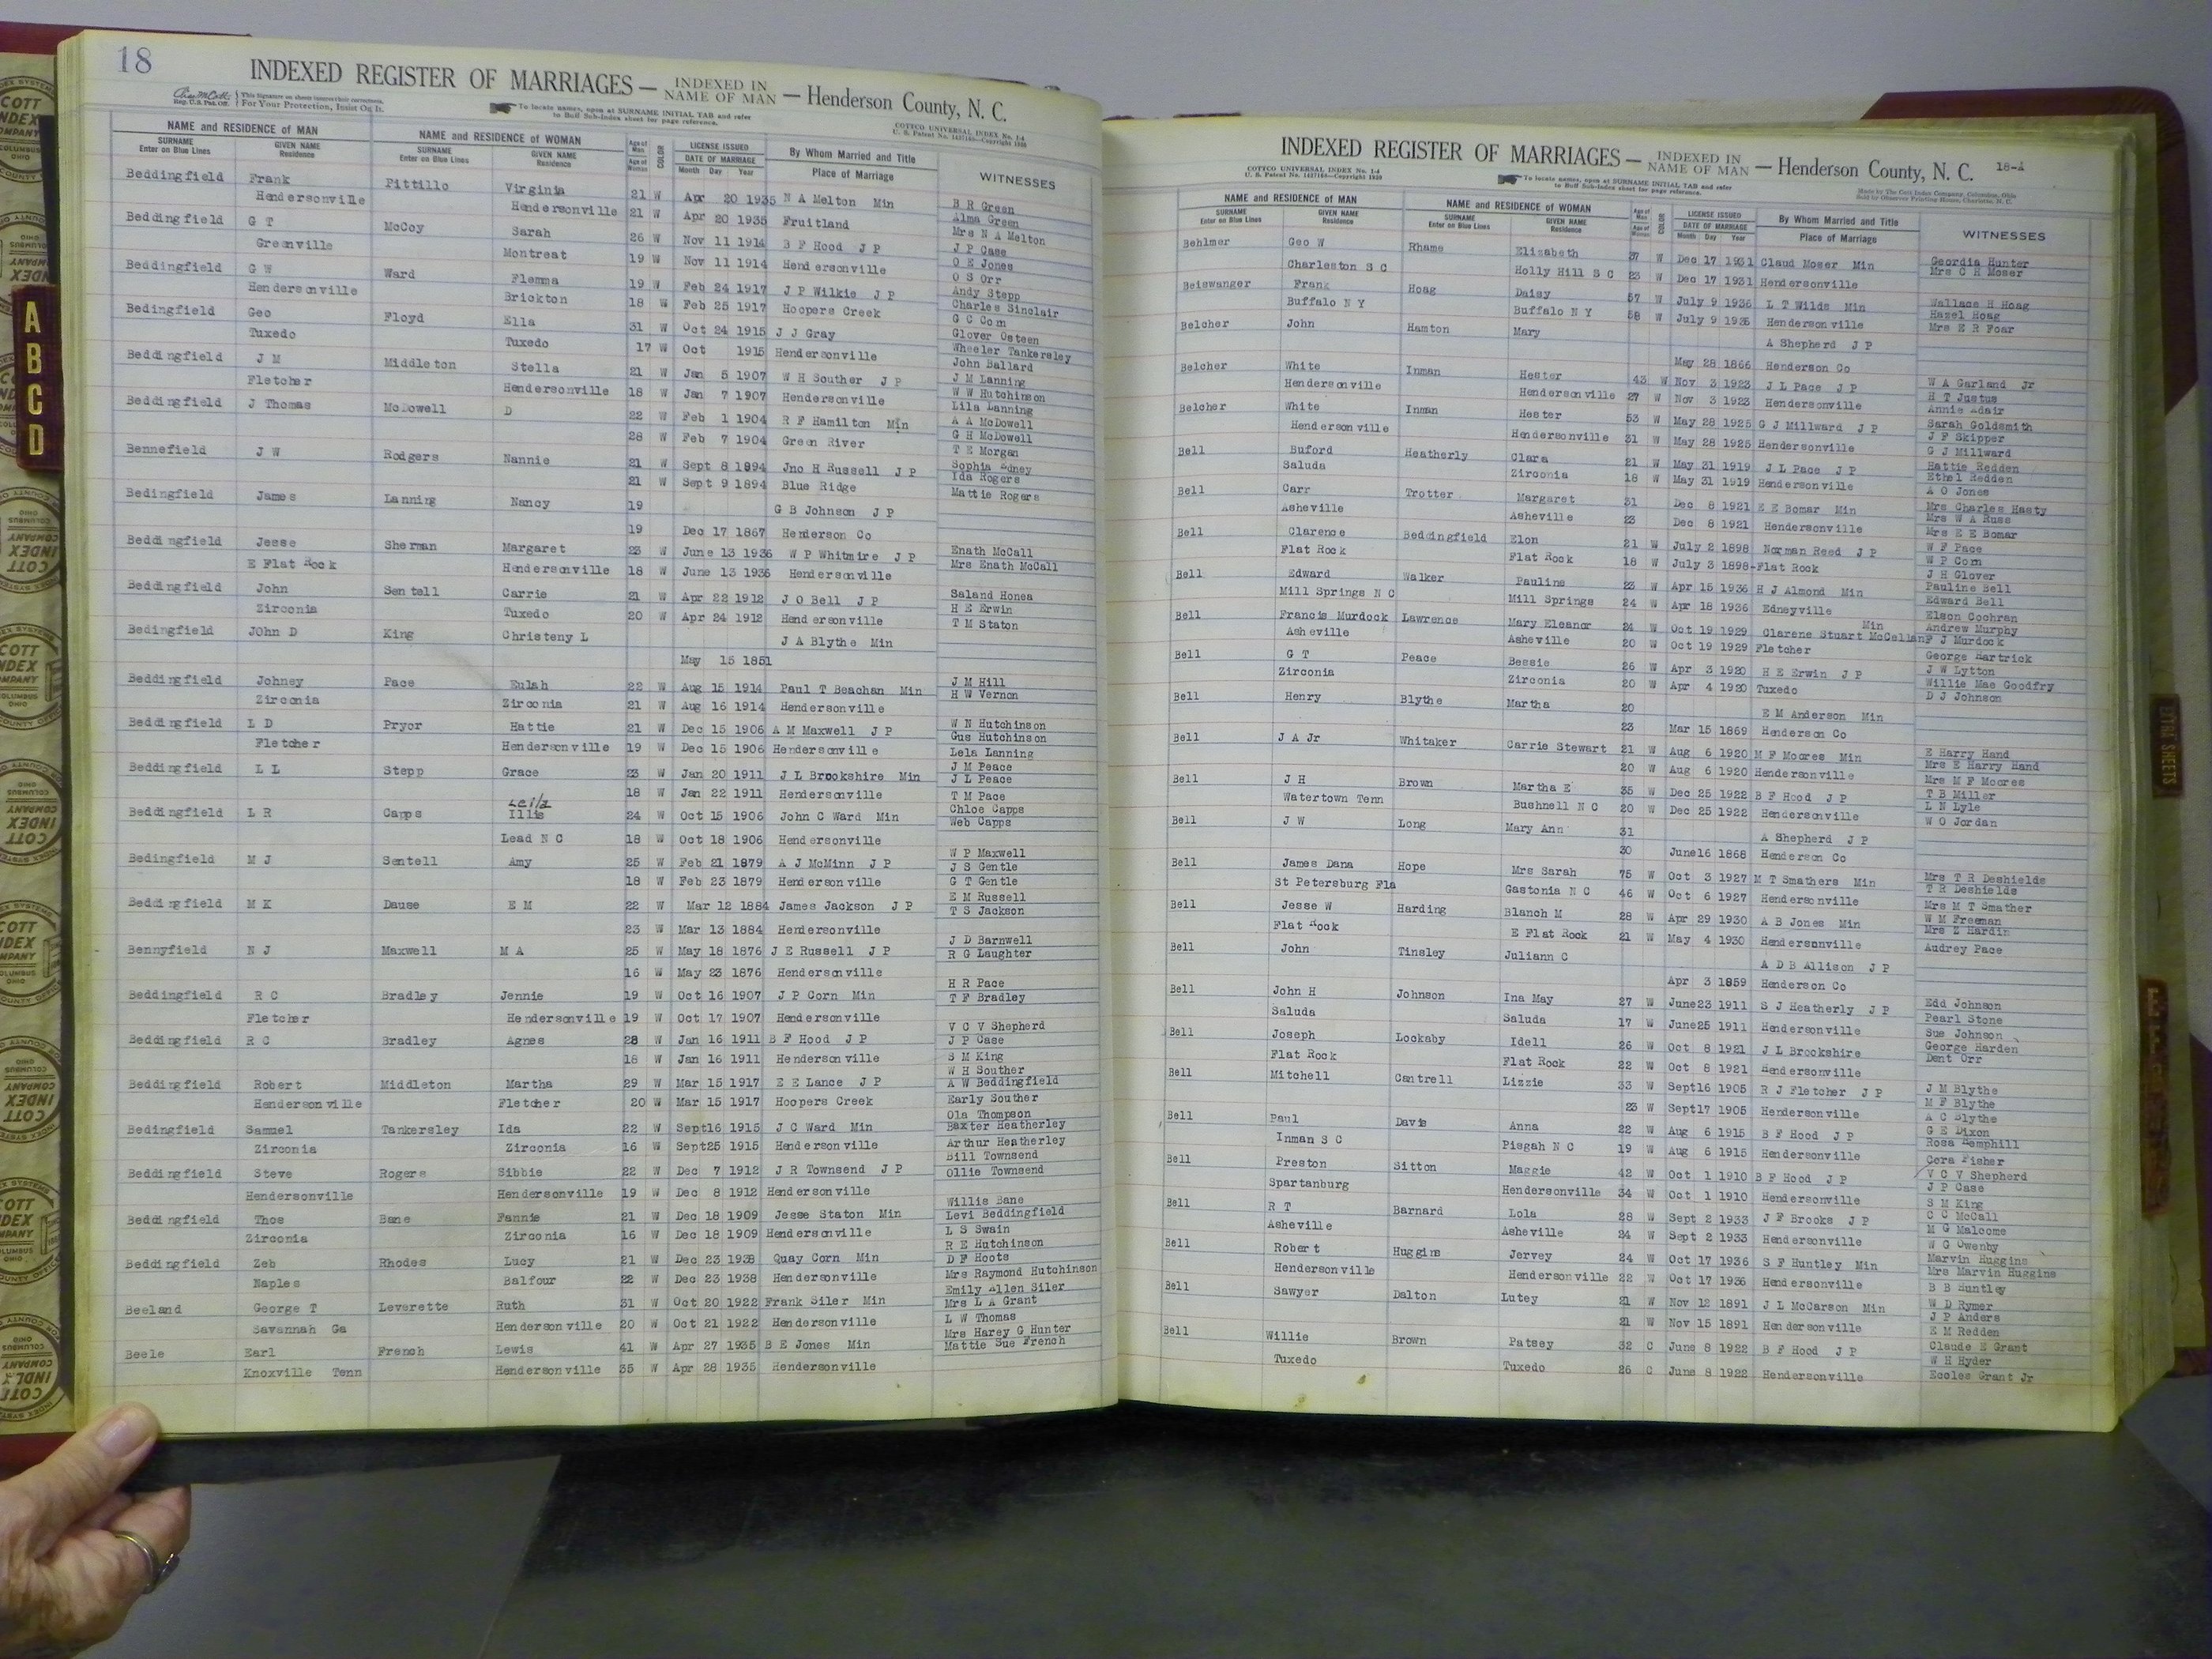 18
INDEXED REGISTER OF MARRIAGES — INDEXED IN NAME OF MAN — Henderson County, N. C.
This Signature on sheets insures their correctness.
Reg. U.S. Pat. Off. For Your Protection, Insist On It.
To locate names, open at SURNAME INITIAL TAB and refer
to Buff Sub-Index sheet for page reference.
COTTCO UNIVERSAL INDEX No. 1-4
NAME and RESIDENCE OF MAN NAME and RESIDENCE of WOMAN Age of Man Age of Woman COLOR LICENSE ISSUED DATE OF MARRIAGE By Whom Married and Title Place of Marriage WITNESSES
SURNAME Enter on Blue Lines GIVEN NAME Residence SURNAME Enter on Blue Lines GIVEN NAME Residence Month Day Year
Beddingfield Frank Pittillo Virginia 21 W Apr 20 1935 N A Melton Min B R Green
Hendersonville Hendersonville 21 W Apr 20 1935 Fruitland Alma Green
Mrs N A Melton
Beddingfield G T McCoy Sarah 26 W Nov 11 1914 B F Hood J P J P Case
Greenville Montreat 19 W Nov 11 1914 Hendersonville O E Jones
O S Orr
Beddingfield G W Ward Flemma 19 W Feb 24 1917 J P Wilkie J P Andy Stepp
Hendersonville Brickton 18 W Feb 25 1917 Hoopers Creek Charles Sinclair
G C Corn
Bedingfield Geo Floyd Ella 31 W Oct 24 1915 J J Gray Glover Osteen
Tuxedo Tuxedo 17 W Oct 1915 Hendersonville Wheeler Tankersley
John Ballard
Beddingfield J M Middleton Stella 21 W Jan 5 1907 W H Souther J P J M Lanning
Fletcher Hendersonville 18 W Jan 7 1907 Hendersonville W W Hutchinson
Lila Lanning
Beddingfield J Thomas McDowell D 22 W Feb 1 1904 R F Hamilton Min A A McDowell
28 W Feb 7 1904 Green River G H McDowell
T E Morgan
Bennefield J W Rodgers Nannie 21 W Sept 8 1894 Jno H Russell J P Sophia Edney
21 W Sept 9 1894 Blue Ridge Ida Rogers
Mattie Rogers
Bedingfield James Lanning Nancy 19 G B Johnson J P
19 Dec 17 1867 Henderson Co
Beddingfield Jesse Sherman Margaret 23 W June 13 1936 W P Whitmire J P Enath McCall
E Flat Rock Hendersonville 18 W June 13 1936 Hendersonville Mrs Enath McCall
Beddingfield John Sentell Carrie 21 W Apr 22 1912 J O Bell J P Saland Honea
Zirconia Tuxedo 20 W Apr 24 1912 Hendersonville H E Erwin
T M Staton
Bedingfield JOhn D King Christeny L J A Blythe Min
May 15 1851
Beddingfield Johney Pace Eulah 22 W Aug 15 1914 Paul T Beachan Min J M Hill
Zirconia Zirconia 21 W Aug 16 1914 Hendersonville H W Vernon
Beddingfield L D Pryor Hattie 21 W Dec 15 1906 A M Maxwell J P W N Hutchinson
Fletcher Hendersonville 19 W Dec 15 1906 Hendersonville Gus Hutchinson
Lela Lanning
Beddingfield L L Stepp Grace 23 W Jan 20 1911 J L Brookshire Min J M Peace
18 W Jan 22 1911 Hendersonville J L Peace
T M Pace
Leila
Beddingfield L R Capps Illis 24 W Oct 15 1906 John C Ward Min Chloe Capps
Lead N C 18 W Oct 18 1906 Hendersonville Web Capps
Bedingfield M J Sentell Amy 25 W Feb 21 1879 A J McMinn J P W P Maxwell
18 W Feb 23 1879 Hendersonville J S Gentle
G T Gentle
Beddingfield M K Dause E M 22 W Mar 12 1884 James Jackson J P E M Russell
23 W Mar 13 1884 Hendersonville T S Jackson
Bennyfield N J Maxwell M A 25 W May 18 1876 J E Russell J P J D Barnwell
16 W May 23 1876 Hendersonville R G Laughter
Beddingfield R C Bradley Jennie 19 W Oct 16 1907 J P Corn Min H R Pace
Fletcher Hendersonville 19 W Oct 17 1907 Hendersonville T F Bradley
Beddingfield R C Bradley Agnes 28 W Jan 16 1911 B F Hood J P V C V Shepherd
18 W Jan 16 1911 Hendersonville J P Case
S M King
Beddingfield Robert Middleton Martha 29 W Mar 15 1917 E E Lance J P W H Souther
Hendersonville Fletcher 20 W Mar 15 1917 Hoopers Creek A W Beddingfield
Early Souther
Bedingfield Samuel Tankersley Ida 22 W Sept16 1915 J C Ward Min Ola Thompson
Zirconia Zirconia 16 W Sept25 1915 Hendersonville Baxter Heatherley
Arthur Heatherley
Beddingfield Steve Rogers Sibbie 22 W Dec 7 1912 J R Townsend J P Bill Townsend
Hendersonville Hendersonville 19 W Dec 8 1912 Hendersonville Ollie Townsend
Beddingfield Thos Bane Fannie 21 W Dec 18 1909 Jesse Staton Min Willis Bane
Zirconia Zirconia 16 W Dec 18 1909 Hendersonville Levi Beddingfield
L S Swain
Beddingfield Zeb Rhodes Lucy 21 W Dec 23 1938 Quay Corn Min R E Hutchinson
Naples Balfour 22 W Dec 23 1938 Hendersonville D F Hoots
Mrs Raymond Hutchinson
Beeland George T Leverette Ruth 31 W Oct 20 1922 Frank Siler Min Emily Allen Siler
Savannah Ga Hendersonville 20 W Oct 21 1922 Hendersonville Mrs L A Grant
L W Thomas
Beele Earl French Lewis 41 W Apr 27 1935 B E Jones Min Mrs Harey G Hunter
Knoxville Tenn Hendersonville 35 W Apr 28 1935 Hendersonville Mattie Sue French
INDEXED REGISTER OF MARRIAGES — INDEXED IN NAME OF MAN — Henderson County, N. C. 18-A
COTTCO UNIVERSAL INDEX No. 1-4
To locate names, open at SURNAME INITIAL TAB and refer
to Buff Sub-Index sheet for page reference.
Made by The Cott Index Company, Columbus, Ohio
Sold by Observer Printing House, Charlotte, N. C.
NAME and RESIDENCE OF MAN NAME and RESIDENCE of WOMAN Age of Man Age of Woman COLOR LICENSE ISSUED DATE OF MARRIAGE By Whom Married and Title Place of Marriage WITNESSES
SURNAME Enter on Blue Lines GIVEN NAME Residence SURNAME Enter on Blue Lines GIVEN NAME Residence Month Day Year
Behlmer Geo W Rhame Elizabeth W Dec 17 1931 Claud Moser Min Geordia Hunter
Charleston S C Holly Hill S C 23 W Dec 17 1931 Hendersonville Mrs C H Moser
Beiswanger Frank Hoag Daisy 57 W July 9 1936 L T Wilds Min Wallace H Hoag
Buffalo N Y Buffalo N Y 58 W July 9 1936 Hendersonville Hazel Hoag
Mrs E R Foar
Belcher John Hamton Mary A Shepherd J P
May 28 1866 Henderson Co
Belcher White Inman Hester 43 W Nov 3 1923 J L Pace J P W A Garland Jr
Hendersonville Hendersonville 27 W Nov 3 1923 Hendersonville H T Justus
Annie Adair
Belcher White Inman Hester 53 W May 28 1925 G J Millward J P Sarah Goldsmith
Hendersonville Hendersonville 31 W May 28 1925 Hendersonville J F Skipper
G J Millward
Bell Buford Heatherly Clara 21 W May 31 1919 J L Pace J P Hattie Redden
Saluda Zirconia 18 W May 31 1919 Hendersonville Ethel Redden
A O Jones
Bell Carr Trotter Margaret 31 Dec 8 1921 E E Bomar Min Mrs Charles Hasty
Asheville Asheville 23 Dec 8 1921 Hendersonville Mrs W A Russ
Mrs E E Bomar
Bell Clarence Beddingfield Elon 21 W July 2 1898 Norman Reed J P W F Pace
Flat Rock Flat Rock 18 W July 3 1898-Flat Rock W P Corn
J H Glover
Bell Edward Walker Pauline 23 W Apr 15 1936 H J Almond Min Pauline Bell
Mill Springs N C Mill Springs 24 W Apr 18 1936 Edneyville Edward Bell
Elson Cochran
Min
Bell Francis Murdock Lawrence Mary Eleanor 24 W Oct 19 1929 Clarene Stuart McCellan Andrew Murphy
Asheville Asheville 20 W Oct 19 1929 Fletcher F J Murdock
George Hartrick
Bell G T Peace Bessie 26 W Apr 3 1920 H E Erwin J P J W Lytton
Zirconia Zirconia 20 W Apr 4 1920 Tuxedo Willie Mae Goodfry
D J Johnson
Bell Henry Blythe Martha 20 E M Anderson Min
23 Mar 15 1869 Henderson Co
Bell J A Jr Whitaker Carrie Stewart 21 W Aug 6 1920 M F Moores Min E Harry Hand
20 W Aug 6 1920 Hendersonville Mrs E Harry Hand
Mrs M F Moores
Bell J H Brown Martha E 35 W Dec 25 1922 B F Hood J P T B Miller
Watertown Tenn Bushnell N C 20 W Dec 25 1922 Hendersonville L N Lyle
W O Jordan
Bell J W Long Mary Ann 31 A Shepherd J P
30 June16 1868 Henderson Co
Bell James Dana Hope Mrs Sarah 75 W Oct 3 1927 M T Smathers Min Mrs T R Deshields
St Petersburg Fla Gastonia N C 46 W Oct 6 1927 Hendersonville T R Deshields
Mrs M T Smather
Bell Jesse W Harding Blanch M 28 W Apr 29 1930 A B Jones Min W M Freeman
Flat Rock E Flat Rock 21 W May 4 1930 Hendersonville Mrs Z Hardin
Audrey Pace
Bell John Tinsley Juliann C A D B Allison J P
Apr 3 1859 Henderson Co
Bell John H Johnson Ina May 27 W June23 1911 S J Heatherly J P Edd Johnson
Saluda Saluda 17 W June25 1911 Hendersonville Pearl Stone
Sue Johnson
Bell Joseph Lockaby Idell 26 W Oct 8 1921 J L Brookshire George Harden
Flat Rock Flat Rock 22 W Oct 8 1921 Hendersonville Dent Orr
Bell Mitchell Cantrell Lizzie 33 W Sept16 1905 R J Fletcher J P J M Blythe
23 W Sept17 1905 Hendersonville M F Blythe
A C Blythe
Bell Paul Davis Anna 22 W Aug 6 1915 B F Hood J P G E Dixon
Inman S C Pisgah N C 19 W Aug 6 1915 Hendersonville Rosa Hemphill
Cora Fisher
Bell Preston Sitton Maggie 42 W Oct 1 1910 B F Hood J P V C V Shepherd
Spartanburg Hendersonville 34 W Oct 1 1910 Hendersonville J P Case
S M King
Bell R T Barnard Lola 28 W Sept 2 1933 J F Brooks J P C C McCall
Asheville Asheville 24 W Sept 2 1933 Hendersonville M G Malcome
W G Owenby
Bell Robert Huggins Jervey 24 W Oct 17 1936 S F Huntley Min Marvin Huggins
Hendersonville Hendersonville 22 W Oct 17 1936 Hendersonville Mrs Marvin Huggins
B B Huntley
Bell Sawyer Dalton Lutey 21 W Nov 12 1891 J L McCarson Min W D Rymer
21 W Nov 15 1891 Hendersonville J P Anders
E M Redden
Bell Willie Brown Patsey 32 C June 8 1922 B F Hood J P Claude E Grant
Tuxedo Tuxedo 26 C June 8 1922 Hendersonville W H Hyder
Eccles Grant Jr
A
B
C
D
EXTRA SHEETS